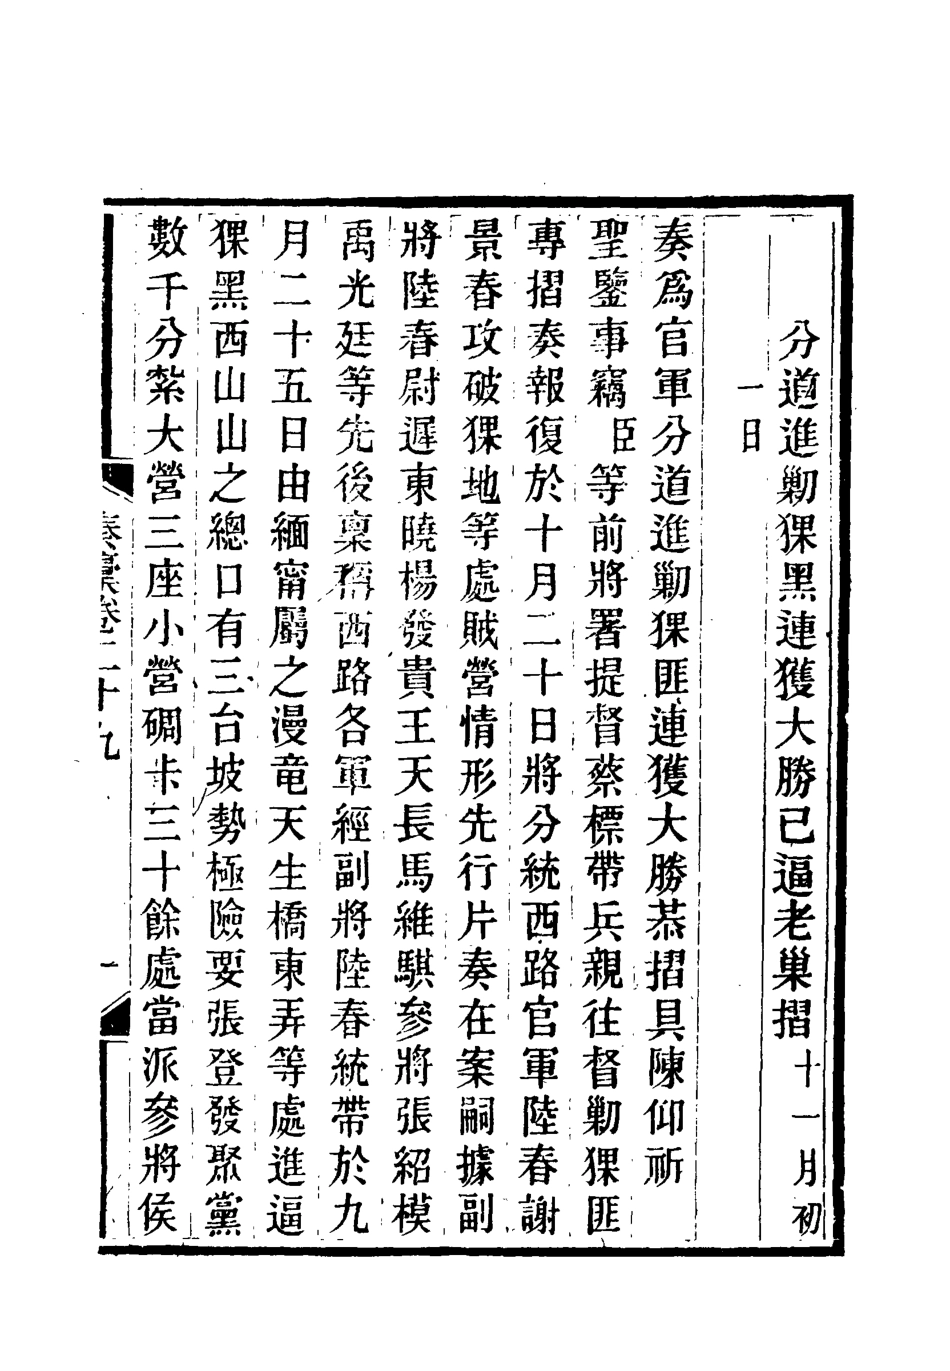 分道進勦猓黑連獲大勝已逼老巢摺十一月初
一日
奏爲官軍分道進勦猓匪連獲大勝恭摺具陳仰祈
聖鑒事竊臣等前將署提督蔡標帶兵親往督勦猓匪
專摺奏報復於十月二十日將分統西路官軍陸春謝
景春攻破猓地等處賊營情形先行片奏在案嗣據副
將陸春尉遲東曉楊發貴王天長馬維騏參將張紹模
禹光廷等先後稟稱西路各軍經副將陸春統帶於九
月二十五日由緬甯屬之漫竜天生橋東弄等處進逼
猓黑西山山之總口有三台坡勢極險要張登發聚黨
數千分紮大營三座小營碉卡三十餘處當派參將侯
奏稾卷二十九
一